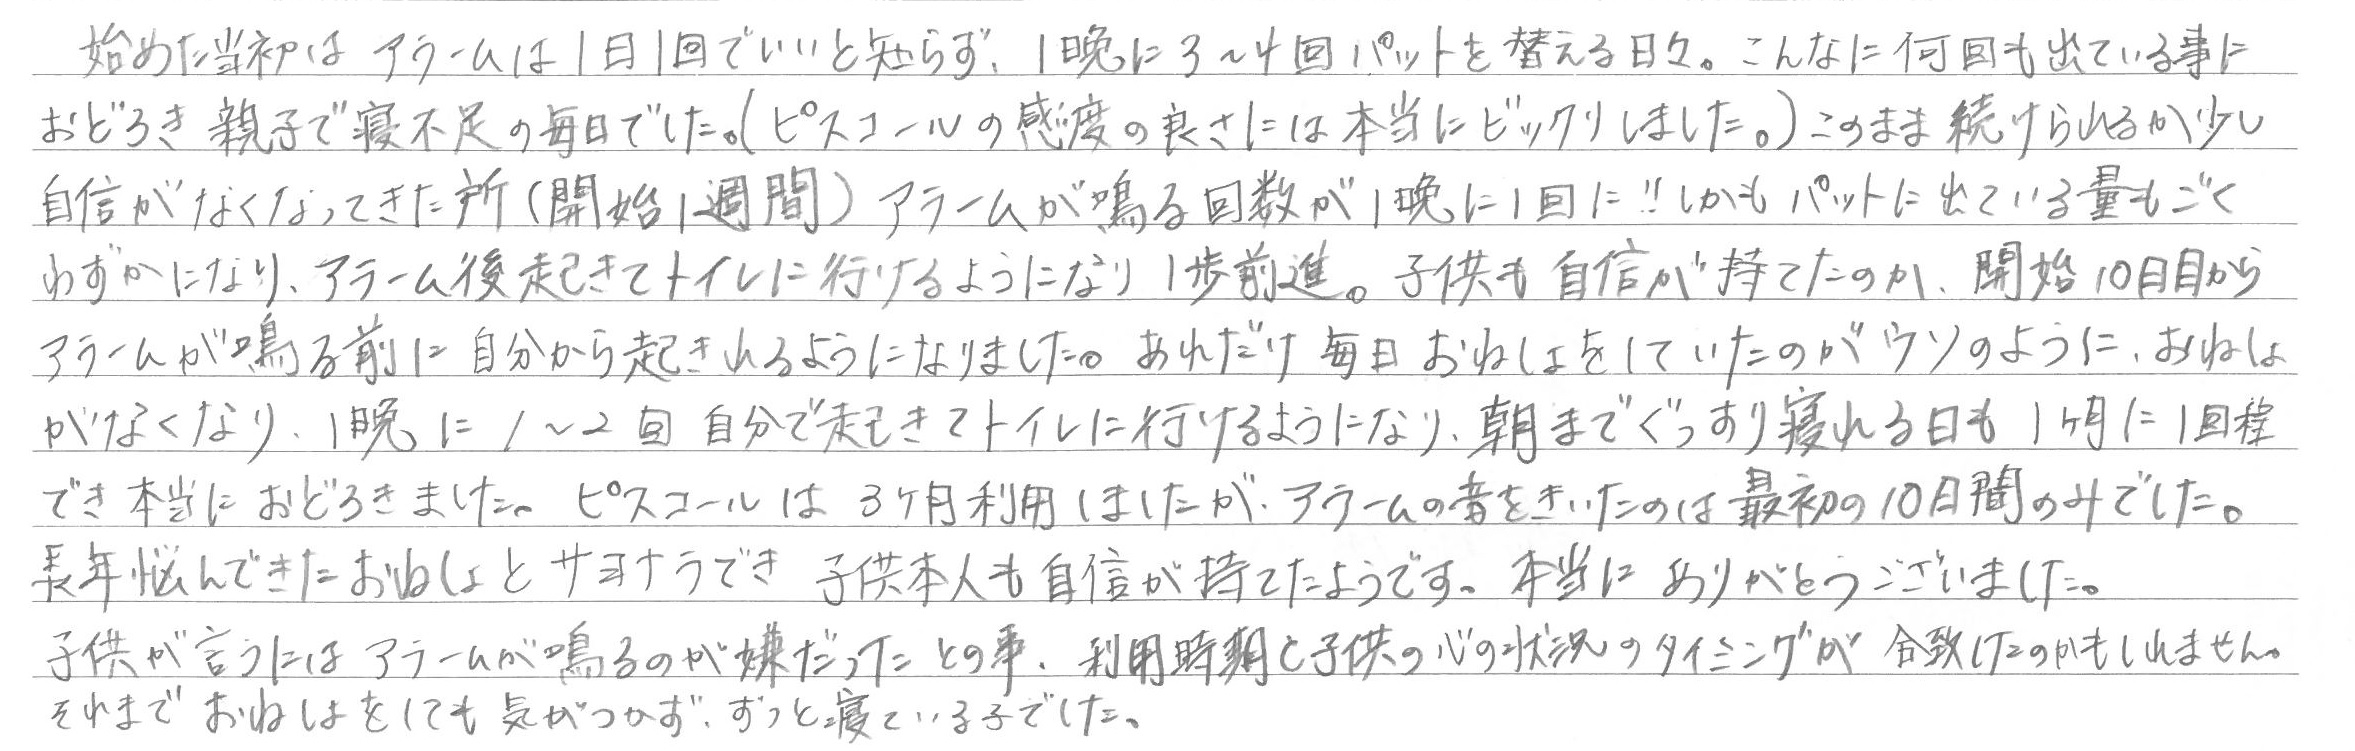 始めた当初は アラームは1日1回でいいと知らず、1晩に3～4回パットを替える日々。こんなに何回も出ている事に
おどろき 親子で寝不足の毎日でした。(ピスコールの感度の良さには本当にビックリしました。)このまま続けられるか少し
自信がなくなってきた所(開始1週間)アラームが鳴る回数が1晩に1回に!!しかもパットに出ている量もごく
わずかになり、アラーム後起きてトイレに行けるようになり1歩前進。子供も自信が持てたのか、開始10日目から
アラームが鳴る前に自分から起きれるようになりました。あれだけ毎日おねしょをしていたのがウソのように、おねしょ
がなくなり、1晩に1～2回自分で起きてトイレに行けるようになり、朝までぐっすり寝れる日も1ヶ月に1回程
でき本当におどろきました。ピスコールは3ヶ月利用しましたが、アラームの音をきいたのは最初の10日間のみでした。
長年悩んできたおねしょとサヨナラでき 子供本人も自信が持てたようです。本当にありがとうございました。
子供が言うにはアラームが鳴るのが嫌だったとの事、利用時期と子供の心の状況のタイミングが合致したのかもしれません。
それまでおねしょをしても気がつかず、ずっと寝ている子でした。